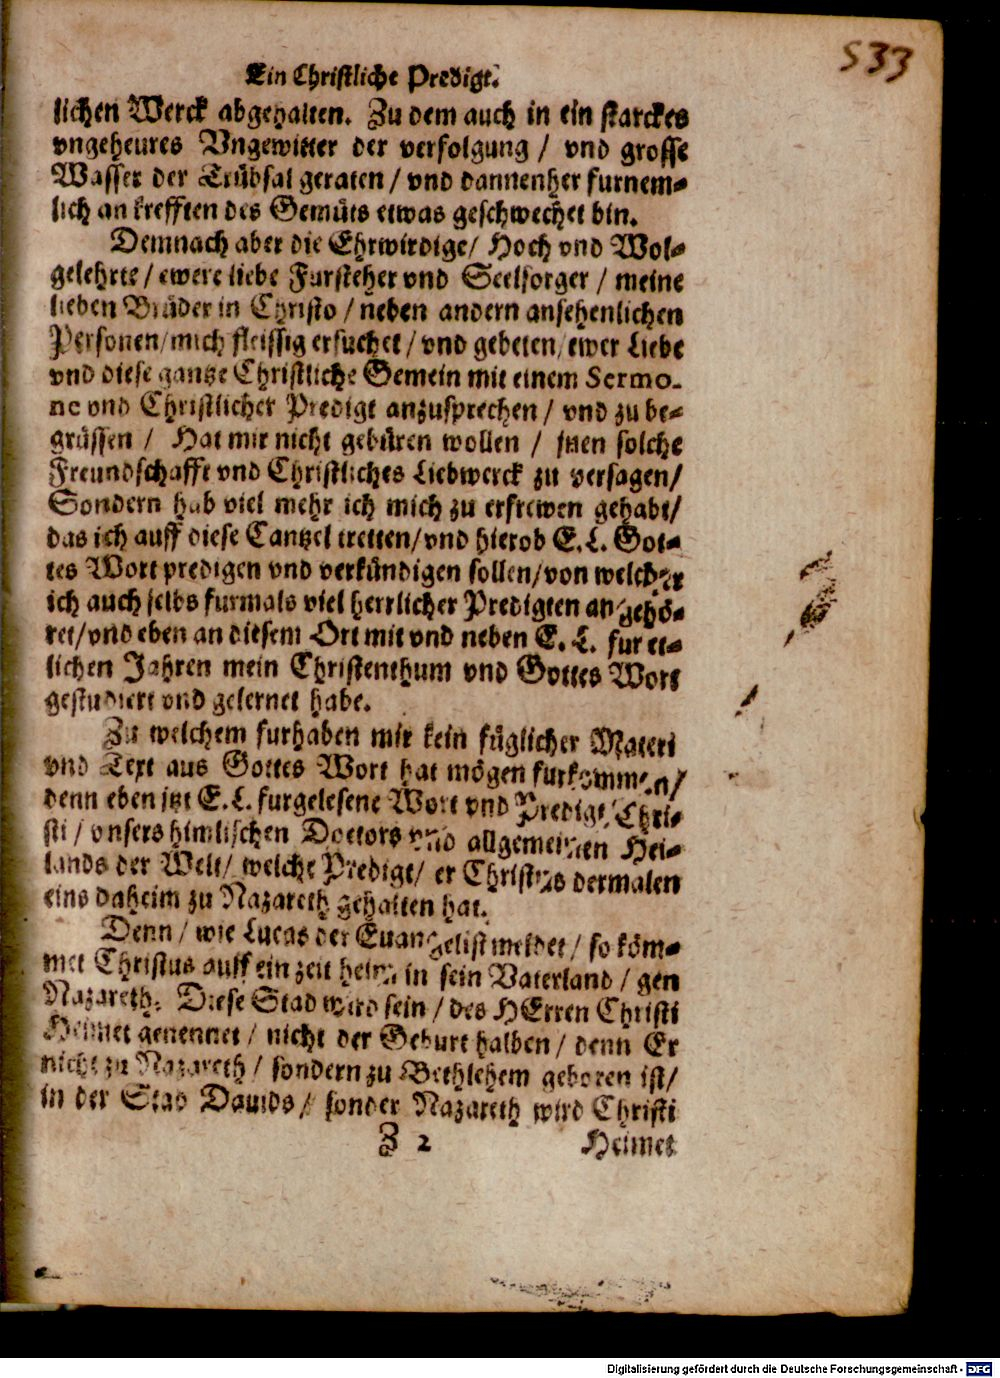 533
Ein Christliche Predigt.
lichen Werck abgehalten. Zu dem auch in ein starckes
vngeheures Vngewitter der verfolgung / vnd grosse
Wasser der Trübsal geraten / vnd dannenher furnem-
lich an krefften des Gemüts etwas geschwechet bin.
Demnach aber die Ehrwirdige / Hoch vnd Wol-
gelehrte / ewere liebe Fursteher vnd Seelsorger / meine
lieben Brüder in Christo / neben andern ansehenlichen
Personen / mich fleissig ersuchet / vnd gebeten / ewer Liebe
vnd diese gantze Christliche Gemein mit einem Sermo-
ne vnd Christlicher Predigt anzusprechen / vnd zu be-
grüssen / Hat mir nicht gebüren wollen / jnen solche
Freundschafft vnd Christliches Liebwerck zu versagen /
Sondern hab viel mehr ich mich zu erfrewen gehabt /
das ich auff diese Cantzel tretten / vnd hierob E. L. Got-
tes Wort predigen vnd verkündigen sollen / von welcher
ich auch selbs furmals viel herrlicher Predigten angehö-
ret / vnd eben an diesem Ort mit vnd neben E. L. fur et-
lichen Jahren mein Christenthum vnd Gottes Wort
gestudiert vnd gelernet habe.
Zu welchem furhaben mir kein füglicher Materi
vnd Text aus Gottes Wort hat mögen furkommen /
denn eben jtzt E. L. furgelesene Wort vnd Predigt Chri-
sti / vnsers himlischen Doctors vnd allgemeinen Hei-
lands der Welt / welche Predigt / er Christus dermalen
eins daheim zu Nazareth gehalten hat.
Denn / wie Lucas der Euangelist meldet / so köm-
met Christus auff ein zeit heim in sein Vaterland / gen
Nazareth. Diese Stad wird sein / des HErren Christi
Heimet genennet / nicht der Geburt halben / denn Er
nicht zu Nazareth / sondern zu Bethlehem geboren ist /
in der Stad Dauids / sonder Nazareth wird Christi
Z 2 Heimet
Digitalisierung gefördert durch die Deutsche Forschungsgemeinschaft - DFG